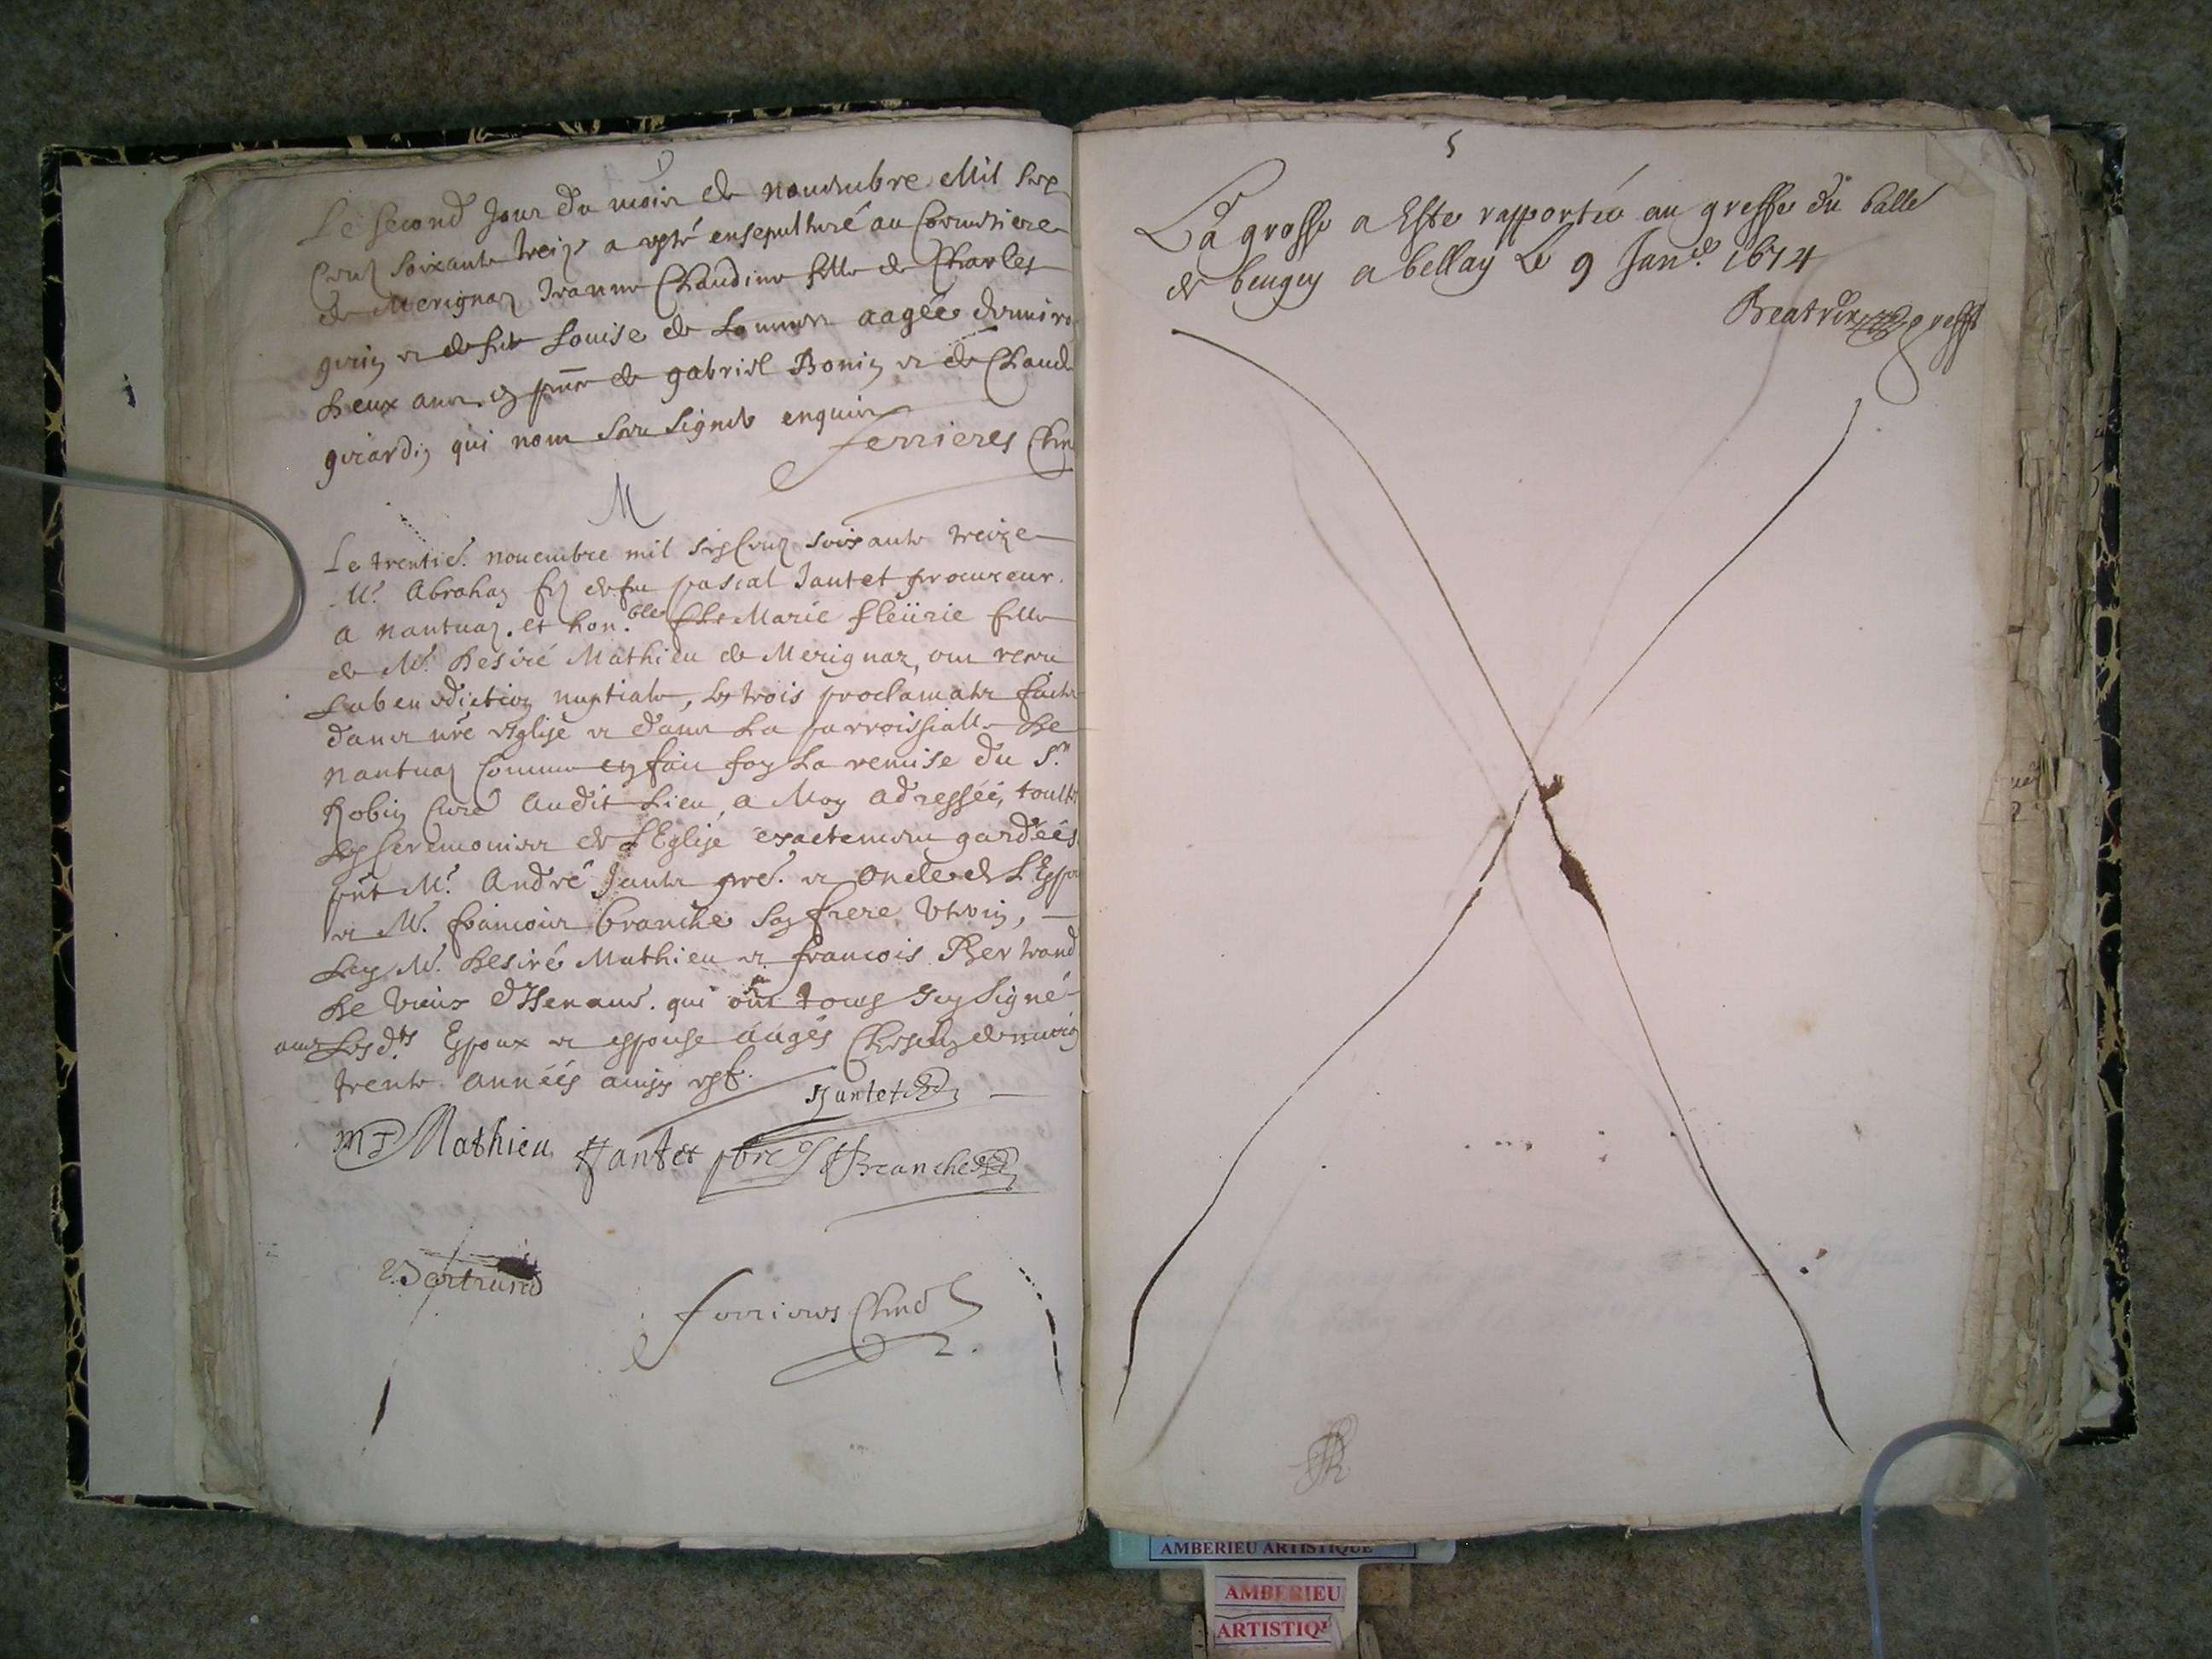 Le second Jour du mois de nouembre Mil six
Cenz soixante treize a esté ensepulturé au Coemetiere
de Merignaz Jeanne Claudine fille de Charles
de Louise de aagée denuiron
deux ans, en pnce de gabriel Bonin et de Claude
girardin qui nont sceu signer enquis
ferrieres
M
Le trentie. nouembre mil sixCenz soixante treize
Mr. Abraham fiz de feu pascal Jantet procureur
a nantuaz. et hon.ble Marie fleürie fille
de Mr. desiré Mathieu de Merignaz, ont receu
la benediction nuptiale, les trois proclamatns faites
dans nre Eglise et dans la parroissialle de
nantuaz Comme en fait foy la remise du Sr.
Robin Curé audit lieu, a Moy adressée, toultes
les Ceremonies de L'Eglise exactement gardées
pnt Mr. André Jantet pre. et oncle de L'Espo
et Mr. francois branche son frere Uterin,
Mr. desiré Mathieu et francois Bertrand
de qui ont tous Icy signé
auec Lesd.ts Espoux et espouse aagés Chescun denuiron
trente années ainsy est.
Jantet
Mathieu Jantet pbre Branche
Bertrand
ferrieres
5
La grosse a Este rapportée au greffe du balle
de beugey a bellay le 9 Jane. 1674
Beatrix greff
AMBERIEU ARTISTIQUE
AMBERIEU
ARTISTIQU